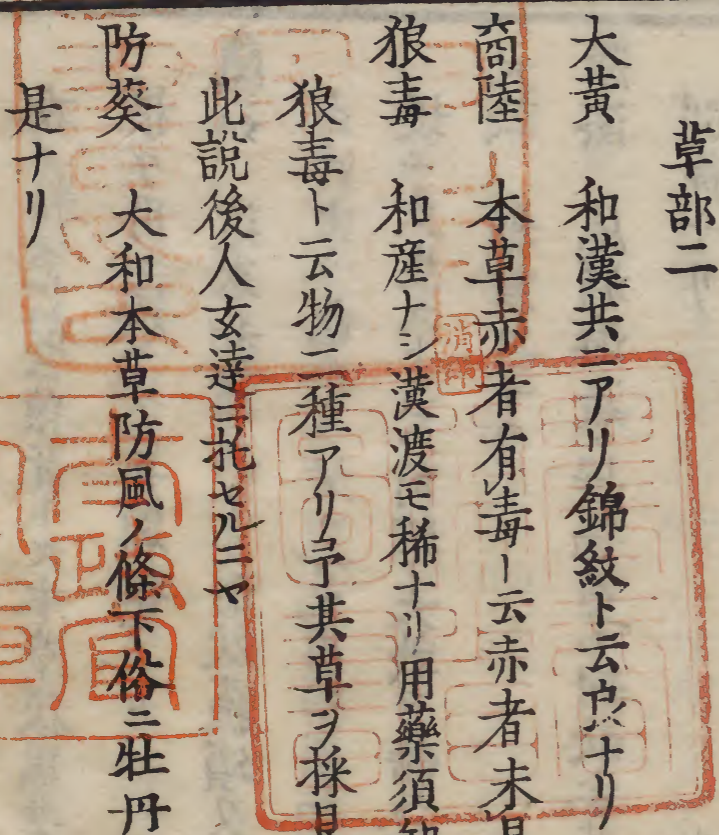 草部二
大黄 和漢共ニアリ錦紋ト云良ナリ
商陸 本草赤者有毒ト云赤者未見
狼毒 和産ナシ漢渡モ稀ナリ用藥須知
狼毒ト云物二種アリ予其草ヲ採見
此説後人玄達ニ托セルニヤ
防葵 大和本草防風ノ條下俗ニ牡丹
是ナリ